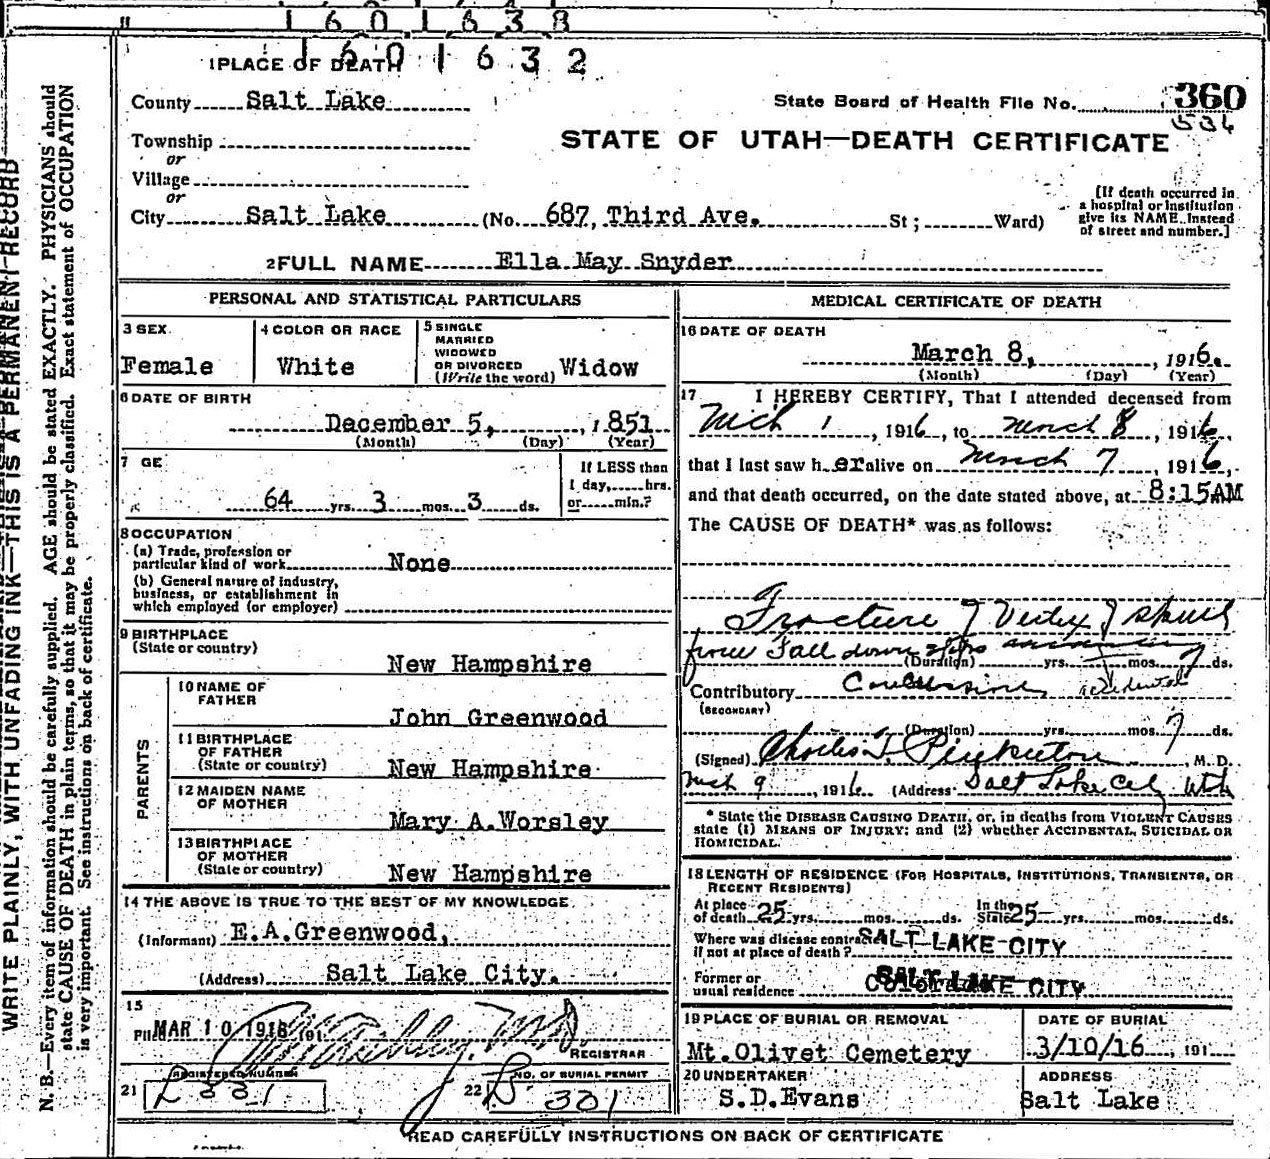 1 6 0 1 6 3 8
1 6 0 1 6 3 2
1 PLACE OF DEATH
County Salt Lake
State Board of Health File No. 360
534
Township
or
STATE OF UTAH—DEATH CERTIFICATE
Village
or
City Salt Lake (No. 687, Third Ave. St; Ward)
[If death occurred in
a hospital or institution
give its NAME instead
of street and number.]
2 FULL NAME Ella May Snyder
PERSONAL AND STATISTICAL PARTICULARS
3 SEX
Female
4 COLOR OR RACE
White
5 SINGLE
MARRIED
WIDOWED
OR DIVORCED
(Write the word) Widow
6 DATE OF BIRTH
December 5, 1851
(Month) (Day) (Year)
7 GE
64 yrs. 3 mos. 3 ds.
If LESS than
1 day, hrs.
or min.?
8 OCCUPATION
(a) Trade, profession or
particular kind of work None
(b) General nature of industry,
business, or establishment in
which employed (or employer)
9 BIRTHPLACE
(State or country)
New Hampshire
PARENTS
10 NAME OF
FATHER
John Greenwood
11 BIRTHPLACE
OF FATHER
(State or country) New Hampshire
12 MAIDEN NAME
OF MOTHER
Mary A.Worsley
13 BIRTHPLACE
OF MOTHER
(State or country) New Hampshire
14 THE ABOVE IS TRUE TO THE BEST OF MY KNOWLEDGE
(Informant) E.A.Greenwood,
(Address) Salt Lake City.
15
MAR 10 1916 191
REGISTRAR
REGISTERED NUMBER
21
NO. OF BURIAL PERMIT
22 B 301
MEDICAL CERTIFICATE OF DEATH
16 DATE OF DEATH
March 8, 1916.
(Month) (Day) (Year)
17 I HEREBY CERTIFY, That I attended deceased from
Mch 1, 1916, to March 8, 1916,
that I last saw her alive on March 7, 1916,
and that death occurred, on the date stated above, at 8:15AM
The CAUSE OF DEATH* was as follows:
Fracture of Vertex of Skull
from Fall down steps
(Duration) yrs. mos. 7 ds.
Contributory Concussion accidental
(SECONDARY)
(Duration) yrs. mos. 7 ds.
(Signed) Charles T. Pinkerton, M. D.
Mch 9, 1916 (Address Salt Lake City Utah
* State the DISEASE CAUSING DEATH, or, in deaths from VIOLENT CAUSES
state (1) MEANS OF INJURY; and (2) whether ACCIDENTAL, SUICIDAL OR
HOMICIDAL.
18 LENGTH OF RESIDENCE (FOR HOSPITALS, INSTITUTIONS, TRANSIENTS, OR
RECENT RESIDENTS)
At place
of death 25 yrs. mos. ds.
In the
State 25 yrs. mos. ds.
Where was disease contracted
if not at place of death? SALT LAKE CITY
Former or
usual residence SALT LAKE CITY
19 PLACE OF BURIAL OR REMOVAL
Mt.Olivet Cemetery
DATE OF BURIAL
3/10/16, 191
20 UNDERTAKER
S.D.Evans
ADDRESS
Salt Lake
READ CAREFULLY INSTRUCTIONS ON BACK OF CERTIFICATE
WRITE PLAINLY, WITH UNFADING INK—THIS IS A PERMANENT RECORD
N. B.—Every item of information should be carefully supplied. AGE should be stated EXACTLY. PHYSICIANS should
state CAUSE OF DEATH in plain terms, so that it may be properly classified. Exact statement of OCCUPATION
is very important. See instructions on back of certificate.